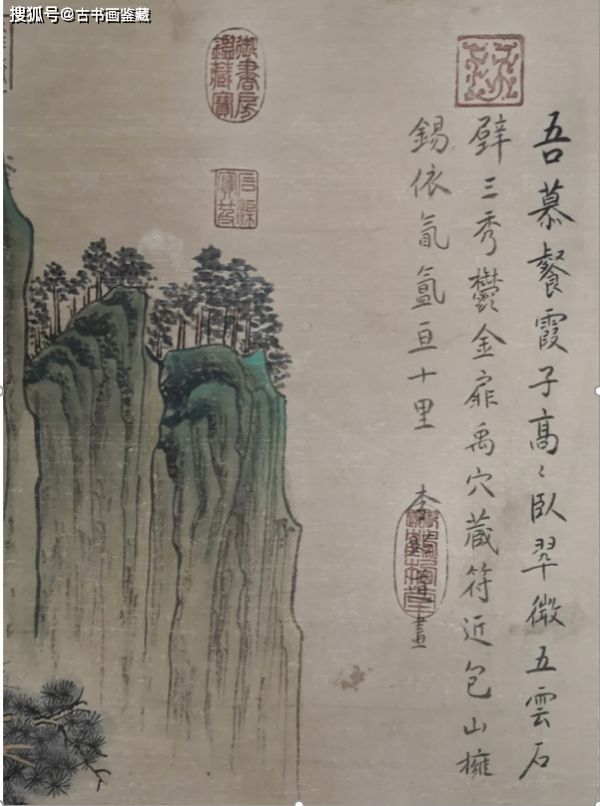 搜狐号@古书画鉴藏
吾慕餐霞子高〻臥翠微五雲石
壁三秀鬱金扉禹穴藏符近包山擁
錫依氤氳亘十里
李 畫
御書房鑑藏寶